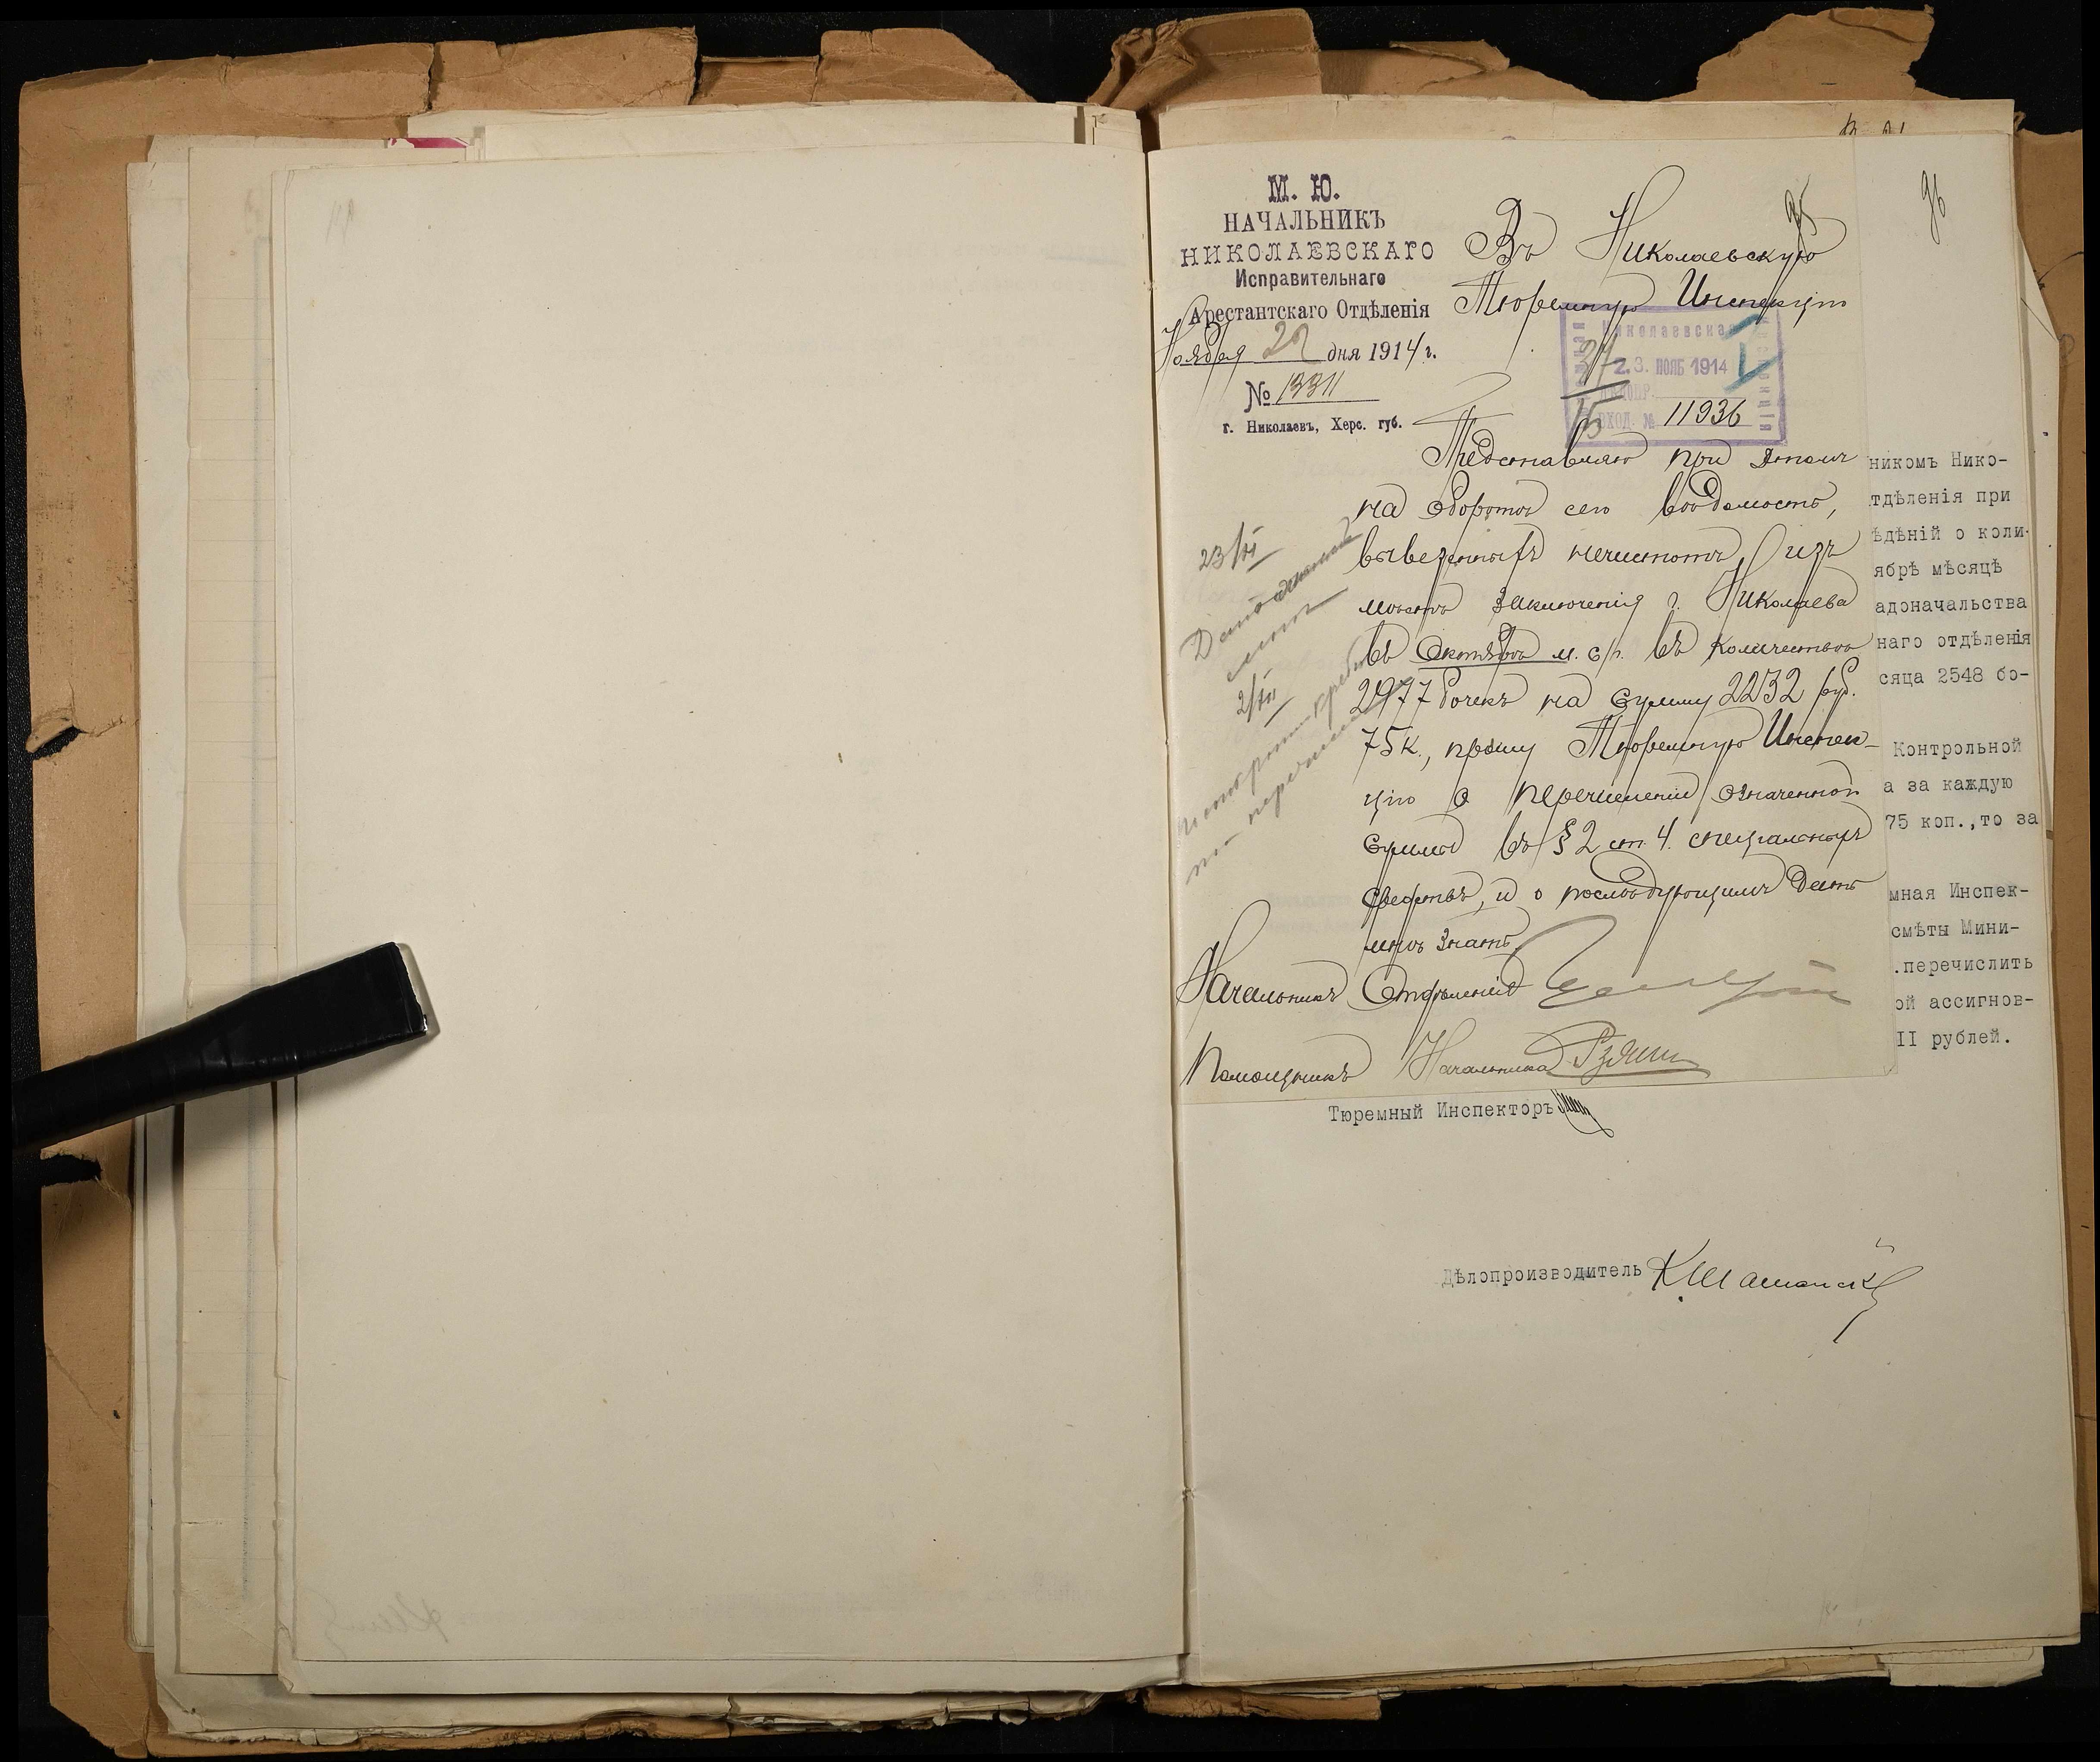 М. Ю.
НАЧАЛЬНИКЪ
НИКОЛАЕВСКАГО
Исправительнаго
Арестантскаго Отдѣленія
Ноября 20 дня 1914 г.
№ 1331
г. Николаевъ, Херс. губ.
95
Въ Николаевскую
Тюремную Инспекцію
Николаевская
23. НОЯБ 1914
ВХОД. № 11936
Представляя при этомъ
на оборотѣ сего вѣдомость,
вывезенныхъ нечистотъ изъ
мѣстъ заключенія г. Николаева
въ Октябрѣ м. с/г. въ количествѣ
2977 бочекъ на сумму 2232 руб.
75 к., прошу Тюремную Инспек-
цію о перечисленіи означенной
суммы въ § 2 ст. 4. спеціальныхъ
средствъ, и о послѣдующемъ дать
мнѣ знать.
Начальникъ Отдѣленія
Помощникъ Начальника
23/XI
2/XII
96
никомъ Нико-
тдѣленія при
ѣдѣній о коли-
ябрѣ мѣсяцѣ
адоначальства
наго отдѣленія
сяца 2548 бо-
Контрольной
а за каждую
75 коп.,то за
мная Инспек-
смѣты Мини-
.перечислить
ой ассигнов-
II рублей.
Тюремный Инспекторъ
Дѣлопроизводитель